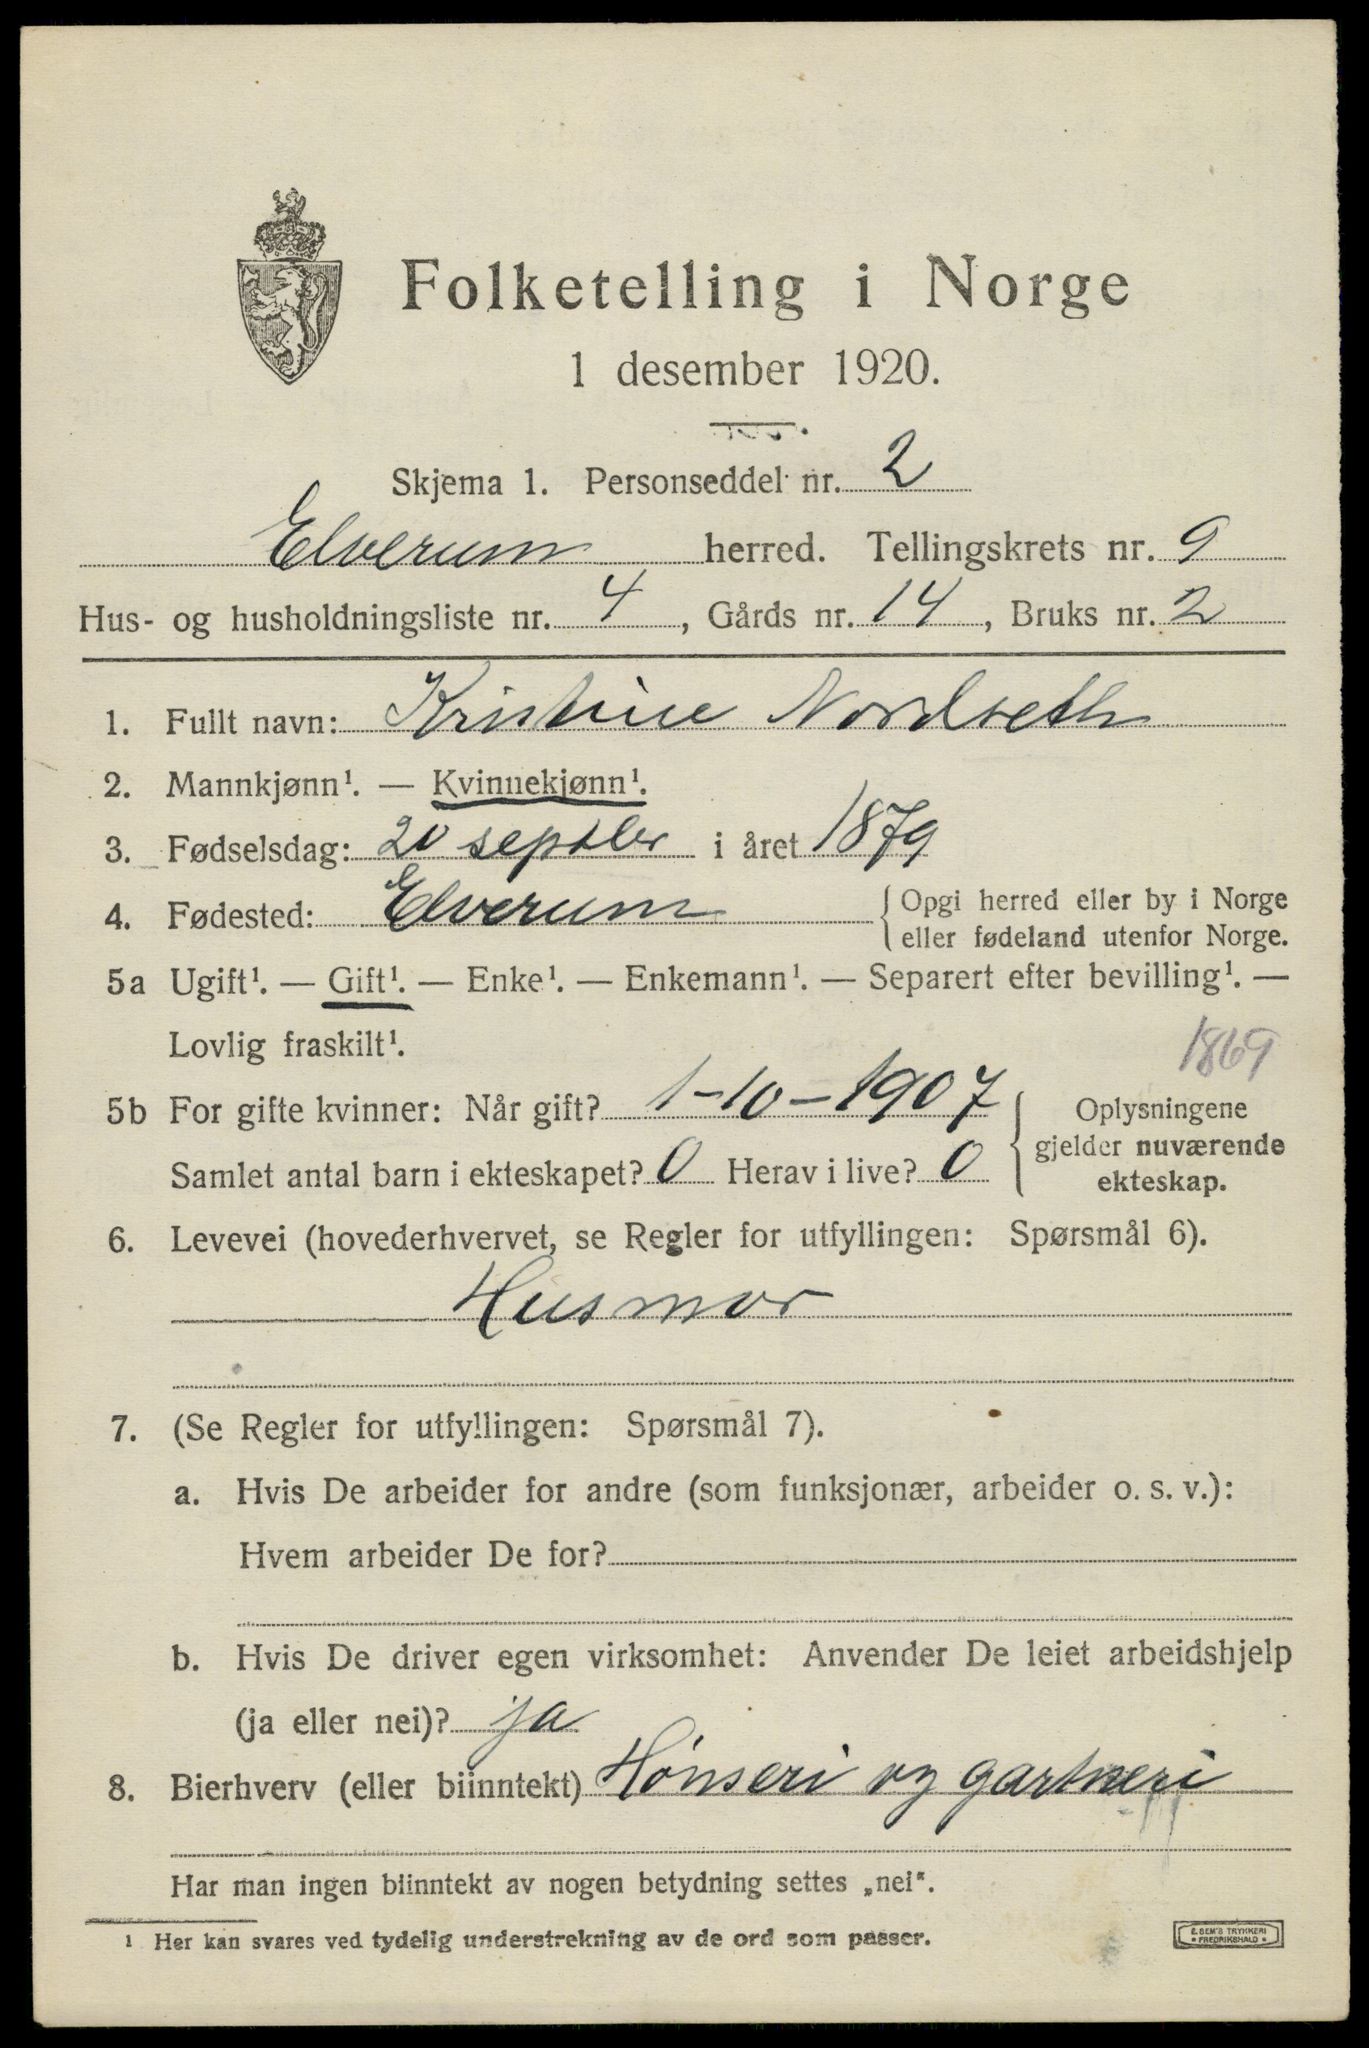 Folketelling i Norge
1 desember 1920.
Skjema 1. Personseddel nr. 2
Elverum herred. Tellingskrets nr. 9
Hus- og husholdningsliste nr. 4, Gårds nr. 14, Bruks nr. 2
1. Fullt navn: Kristine Nordseth
2. Mannkjønn¹. — Kvinnekjønn¹.
3. Fødselsdag: 20 septbr i året 1879
4. Fødested: Elverum {Opgi herred eller by i Norge
eller fødeland utenfor Norge.
5a Ugift¹. — Gift¹. — Enke¹. — Enkemann¹. — Separert efter bevilling¹. —
Lovlig fraskilt¹.
1869
5b For gifte kvinner: Når gift? 1-10-1907 { Oplysningene
gjelder nuværende
Samlet antal barn i ekteskapet? 0 Herav i live? 0
ekteskap.
6. Levevei (hovederhvervet, se Regler for utfyllingen: Spørsmål 6).
Husmor
7. (Se Regler for utfyllingen: Spørsmål 7).
a. Hvis De arbeider for andre (som funksjonær, arbeider o. s. v.):
Hvem arbeider De for?
b. Hvis De driver egen virksomhet: Anvender De leiet arbeidshjelp
(ja eller nei)? ja
8. Bierhverv (eller biinntekt) Hønseri og gartneri
Har man ingen biinntekt av nogen betydning settes „nei".
¹ Her kan svares ved tydelig understrekning av de ord som passer.
E. SEM'S TRYKKERI
* FREDRIKSHALD *